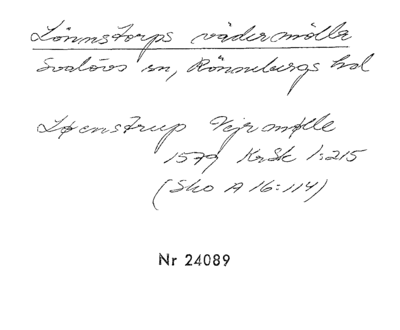 Lönnstorps vädermölla
Svalövs sn, Rönnebergs hd
Løenstrup Vejrmølle
1579 KrSk 1:215
(Sko A 16:114)
Nr 24089